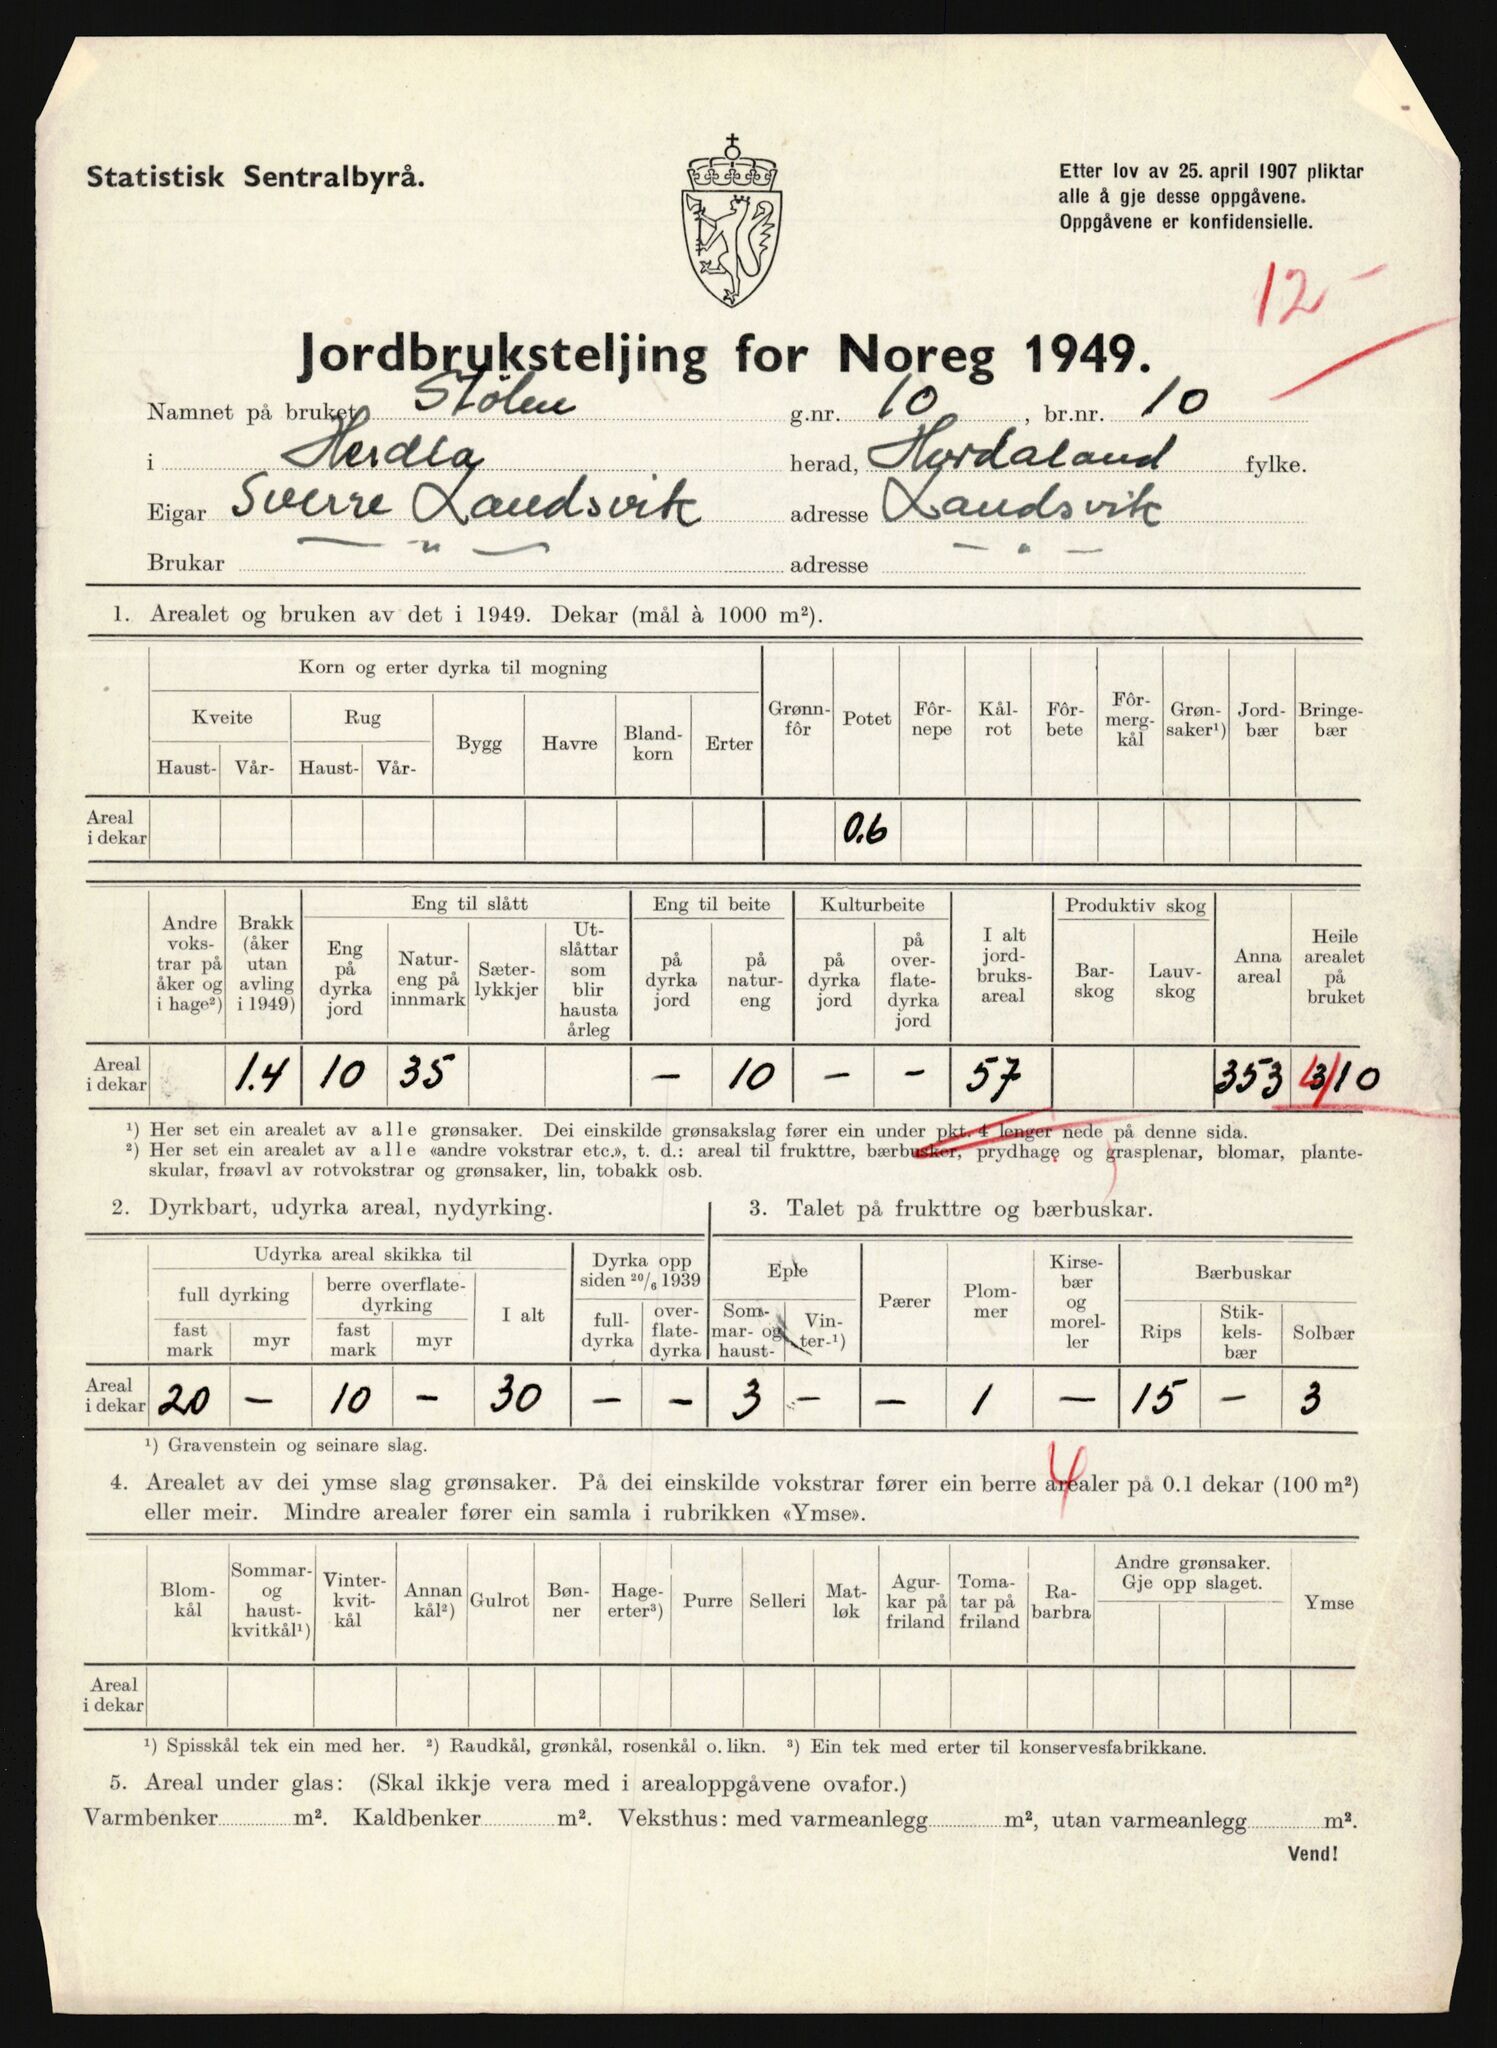 Statistisk Sentralbyrå.
Etter lov av 25. april 1907 pliktar
alle å gje desse oppgåvene.
Oppgåvene er konfidensielle.
12
Jordbruksteljing for Noreg 1949.
Namnet på bruket Stölen g.nr. 10, br.nr. 10
i Herdla herad, Hordaland fylke.
Eigar Sverre Landsvik adresse Landsvik
Brukar — " — adresse — " —
1. Arealet og bruken av det i 1949. Dekar (mål à 1000 m²).
Korn og erter dyrka til mogning
Kveite Rug Bygg Havre Bland-korn Erter Grønn-fôr Potet Fôr-nepe Kål-rot Fôr-bete Fôr-merg-kål Grøn-saker¹) Jord-bær Bringe-bær
Haust- Vår- Haust- Vår-
Areal i dekar 0.6
Andre voks-trar på åker og i hage²) Brakk (åker utan avling i 1949) Eng til slått Eng til beite Kulturbeite I alt jord-bruks-areal Produktiv skog Anna areal Heile arealet på bruket
Eng på dyrka jord Natur-eng på innmark Sæter-lykkjer Ut-slåttar som blir hausta årleg på dyrka jord på natur-eng på dyrka jord på over-flate-dyrka jord Bar-skog Lauv-skog
Areal i dekar 1.4 10 35 — 10 — — 57 353 /10
¹) Her set ein arealet av alle grønsaker. Dei einskilde grønsakslag fører ein under pkt. 4 lenger nede på denne sida.
²) Her set ein arealet av alle «andre vokstrar etc.», t. d.: areal til frukttre, bærbusker, prydhage og grasplenar, blomar, plante-
skular, frøavl av rotvokstrar og grønsaker, lin, tobakk osb.
2. Dyrkbart, udyrka areal, nydyrking.
3. Talet på frukttre og bærbuskar.
Udyrka areal skikka til Dyrka opp siden 20/6 1939 Eple Pærer Plom-mer Kirse-bær og morel-ler Bærbuskar
full dyrking berre overflate-dyrking I alt full-dyrka over-flate-dyrka Som-mar- og haust- Vin-ter-¹) Rips Stik-kels-bær Solbær
fast mark myr fast mark myr
Areal i dekar 20 — 10 — 30 — — 3 — — 1 — 15 — 3
¹) Gravenstein og seinare slag.
4
4. Arealet av dei ymse slag grønsaker. På dei einskilde vokstrar fører ein berre arealer på 0.1 dekar (100 m²)
eller meir. Mindre arealer fører ein samla i rubrikken «Ymse».
Blom-kål Sommar- og haust-kvitkål¹) Vinter-kvit-kål Annan kål²) Gulrot Bøn-ner Hage-erter³) Purre Selleri Mat-løk Agur-kar på friland Toma-tar på friland Ra-barbra Andre grønsaker. Gje opp slaget. Ymse
Areal i dekar
¹) Spisskål tek ein med her. ²) Raudkål, grønkål, rosenkål o. likn. ³) Ein tek med erter til konservesfabrikkane.
5. Areal under glas: (Skal ikkje vera med i arealoppgåvene ovafor.)
Varmbenker m². Kaldbenker m². Veksthus: med varmeanlegg m², utan varmeanlegg m².
Vend!